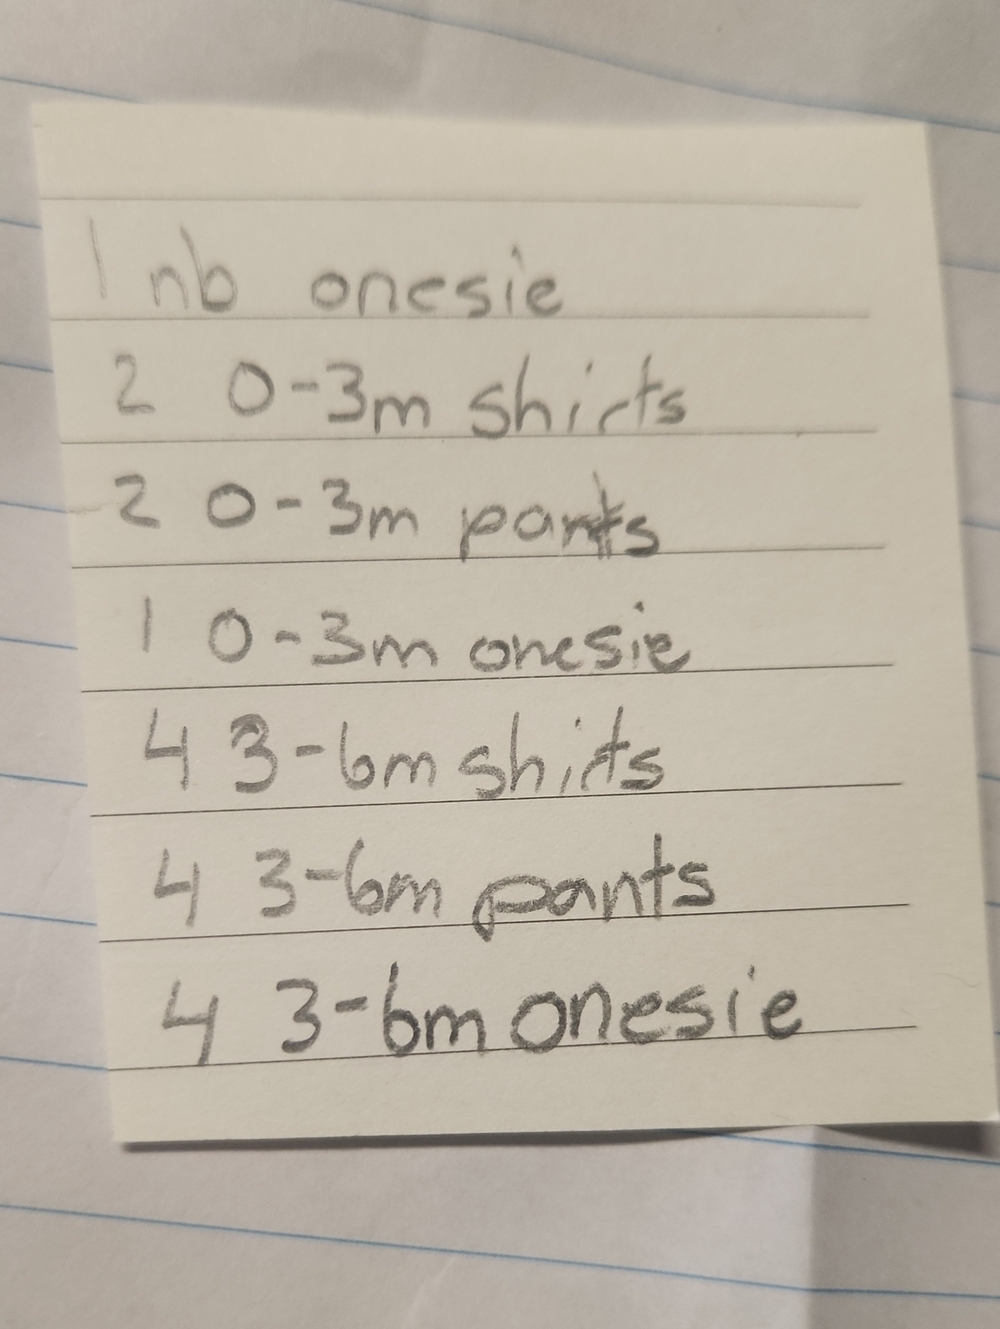 1 nb onesie
2 0-3m shirts
2 0-3m pants
1 0-3m onesie
4 3-6m shirts
4 3-6m pants
4 3-6m onesie